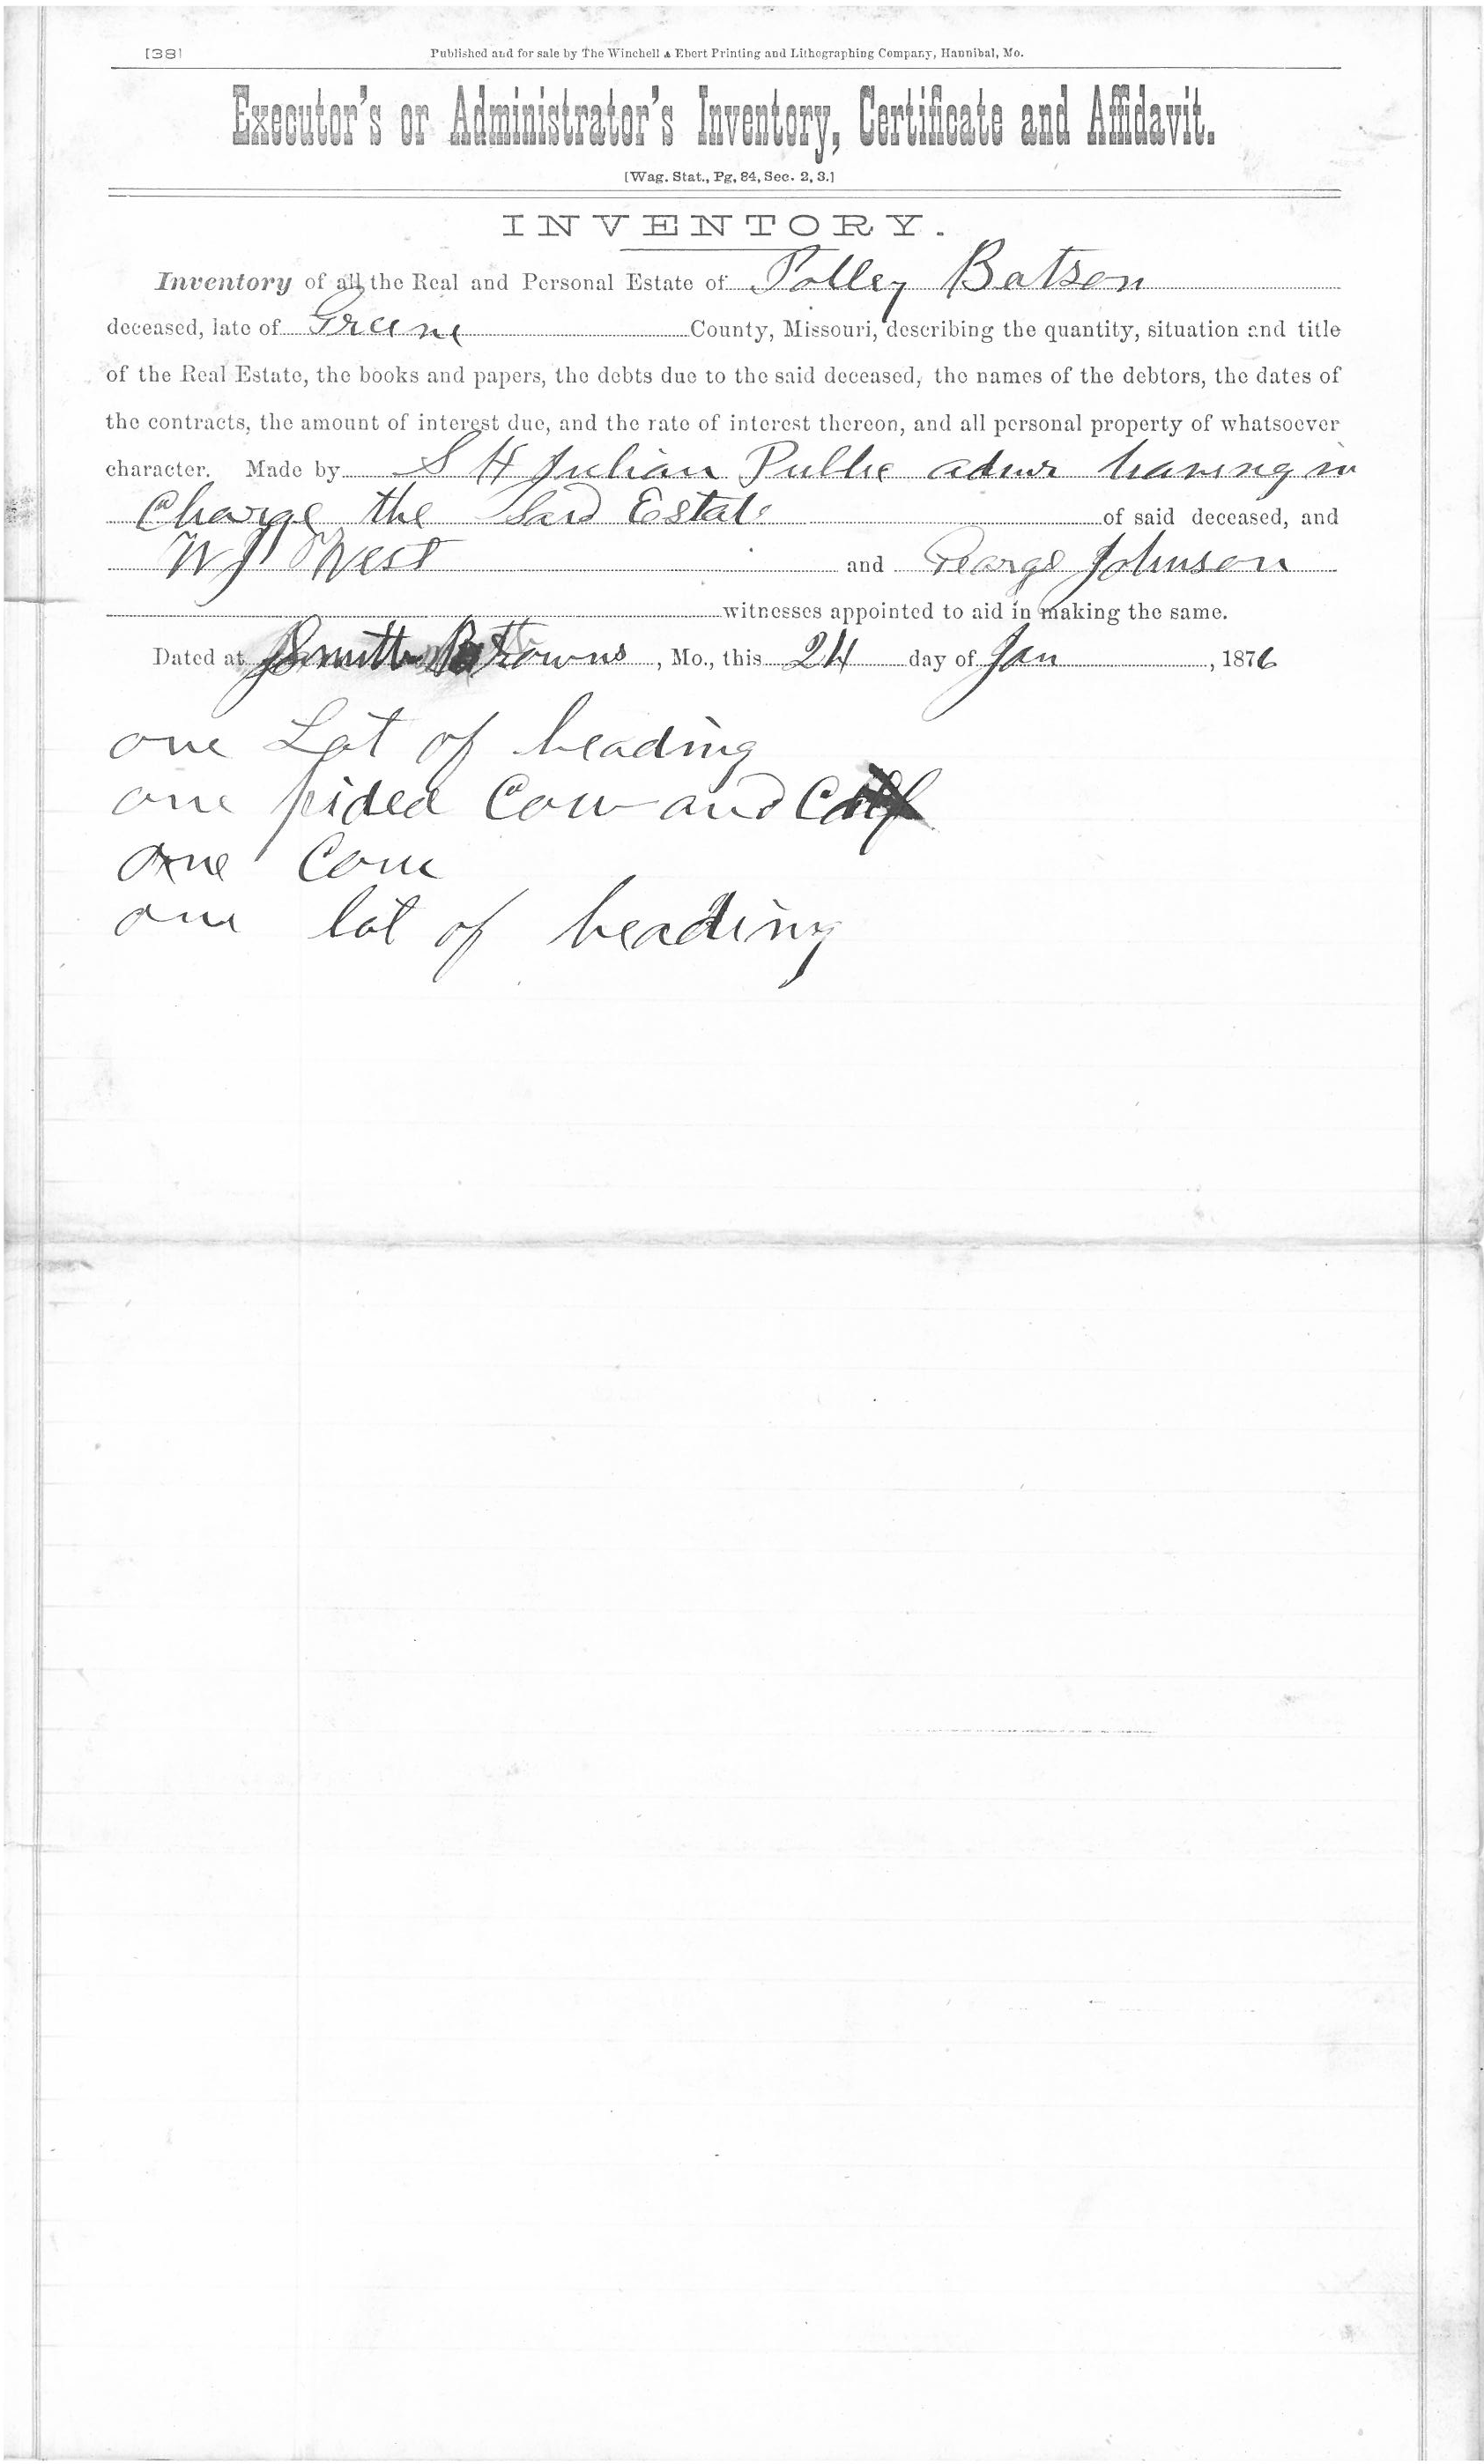 [38]
Published and for sale by The Winchell & Ebert Printing and Lithographing Company, Hannibal, Mo.
Executor's or Administrator's Inventory, Certificate and Affidavit.
[Wag. Stat., Pg, 84, Sec. 2, 3.]
INVENTORY.
Inventory of all the Real and Personal Estate of Polley Batson
deceased, late of Greene County, Missouri, describing the quantity, situation and title
of the Real Estate, the books and papers, the debts due to the said deceased, the names of the debtors, the dates of
the contracts, the amount of interest due, and the rate of interest thereon, and all personal property of whatsoever
character. Made by S H Julian Public admr having in
Charge the Said Estate of said deceased, and
W J West and George Johnson
witnesses appointed to aid in making the same.
Dated at Smith Browns, Mo., this 24 day of Jan, 1876
one Lot of beading
one pided Cow and Calf
one Cow
one lot of beading